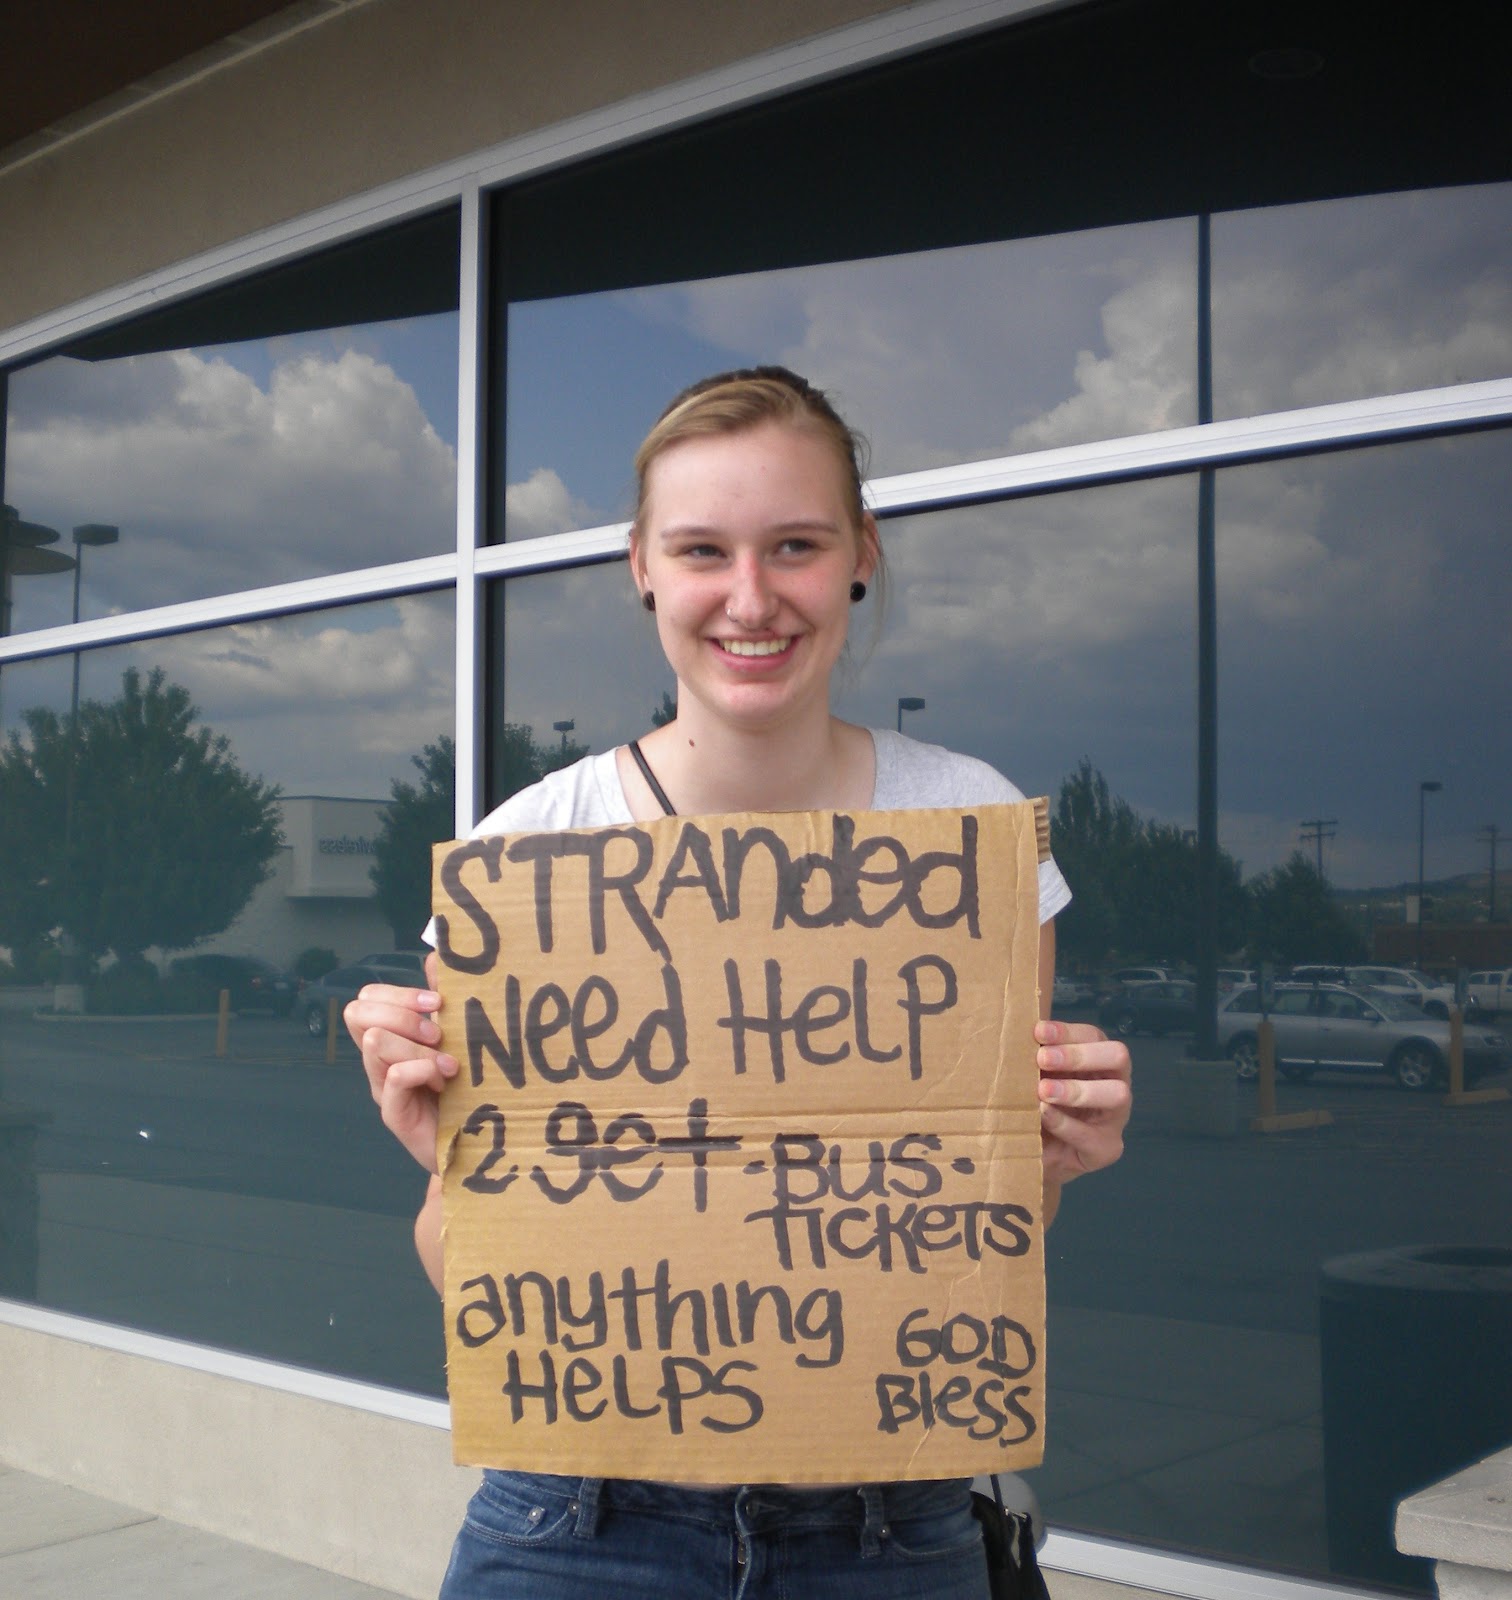 STRANded
Need HeLP
2 get • BUS •
TICKeTS
anything
HeLPS
GOD
Bless
wireless